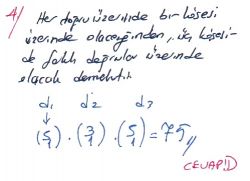 4) Her doğru üzerinde bir köşesi
üzerinde olacağından, üç köşeli-
de farklı doğrular üzerinde
olacak demektir.
d₁ d₂ d₃
↓
(5 1) · (3 1) · (5 1) = 75//
CEVAP: D